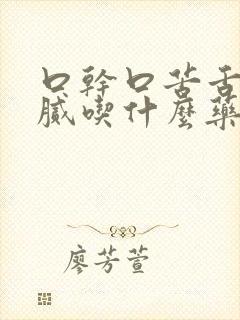 口幹口苦舌
膩喫什麼藥
廖芳萱